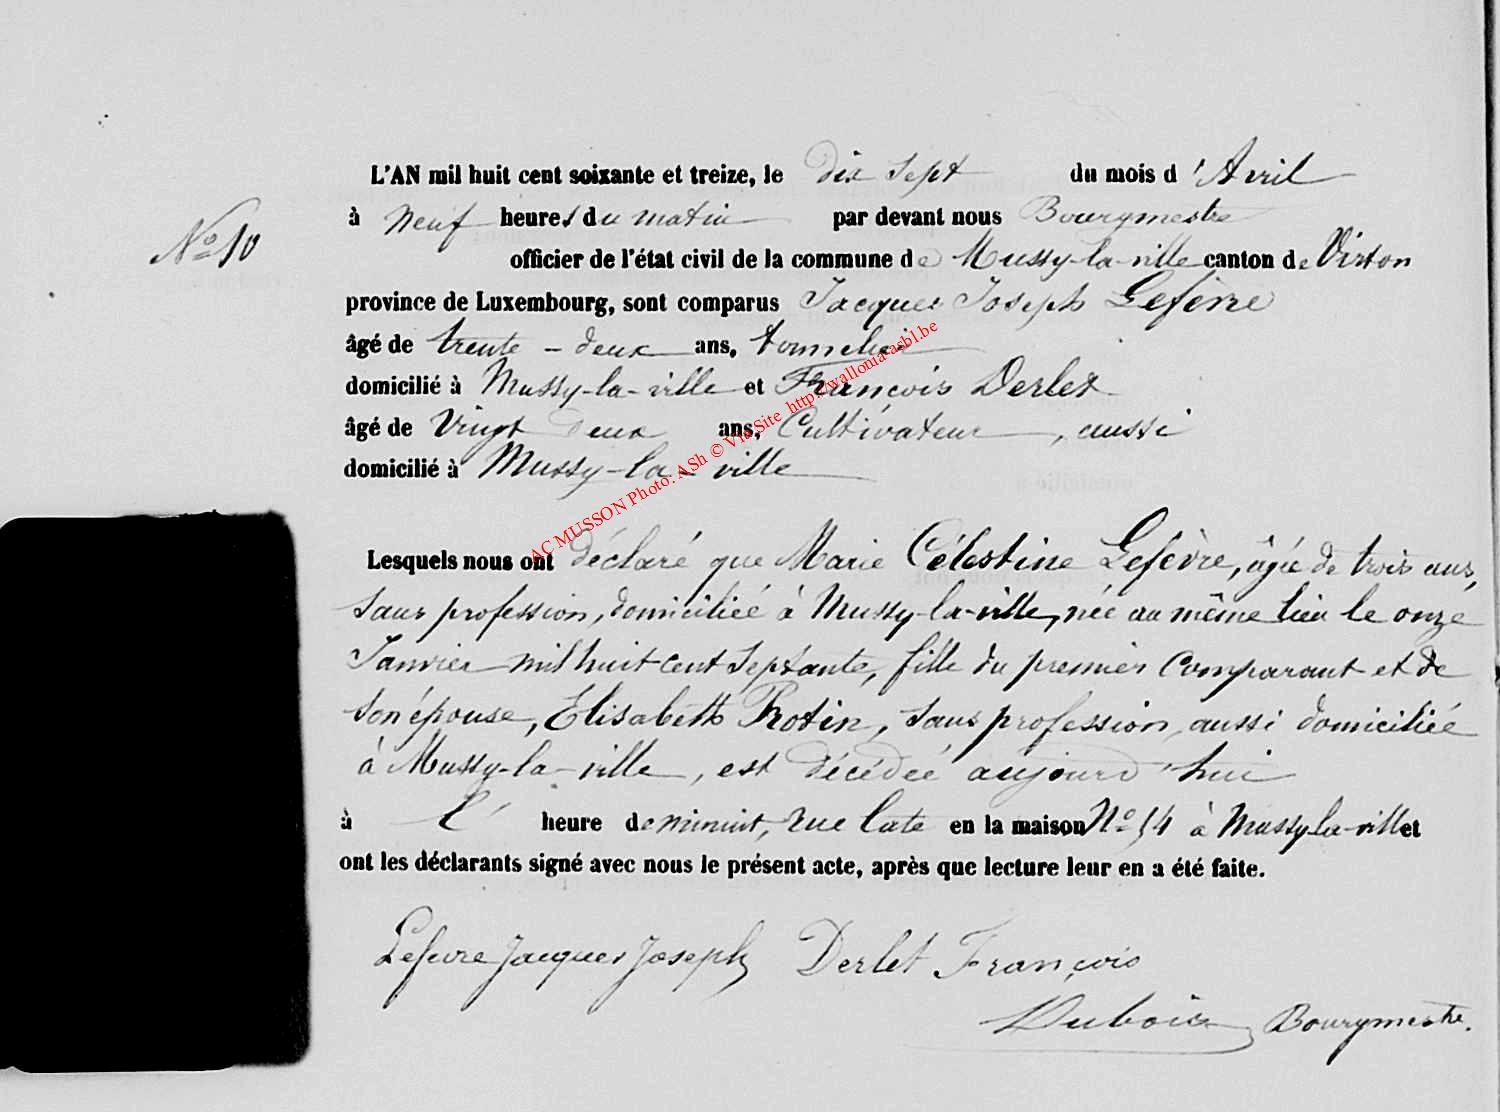 L'AN mil huit cent soixante et treize, le dix sept du mois d'Avril
No 10
à neuf heures du matin par devant nous Bourgmestre
officier de l'état civil de la commune de Mussy-la-ville canton de Virton
province de Luxembourg, sont comparus Jacques Joseph Lefèvre
âgé de trente-deux ans, tonnelier
domicilié à Mussy-la-ville et François Derlet
âgé de Vingt deux ans, Cultivateur, aussi
domicilié à Mussy-la-ville
AC MUSSON Photo. ASh © Via Site http://wallonia-asbl.be
Lesquels nous ont déclaré que Marie Célestine Lefèvre, âgée de trois ans,
sans profession, domiciliée à Mussy-la-ville, née au même lieu le onze
Janvier mil huit cent septante, fille du premier Comparant et de
son épouse, Elisabeth Protin, sans profession, aussi domiciliée
à Mussy-la-ville, est décédée aujourd'hui
à l' heure de minuit, rue en la maison No 54 à Mussy-la-ville et
ont les déclarants signé avec nous le présent acte, après que lecture leur en a été faite.
Lefevre Jacques Joseph Derlet François
Dubois Bourgmestre.